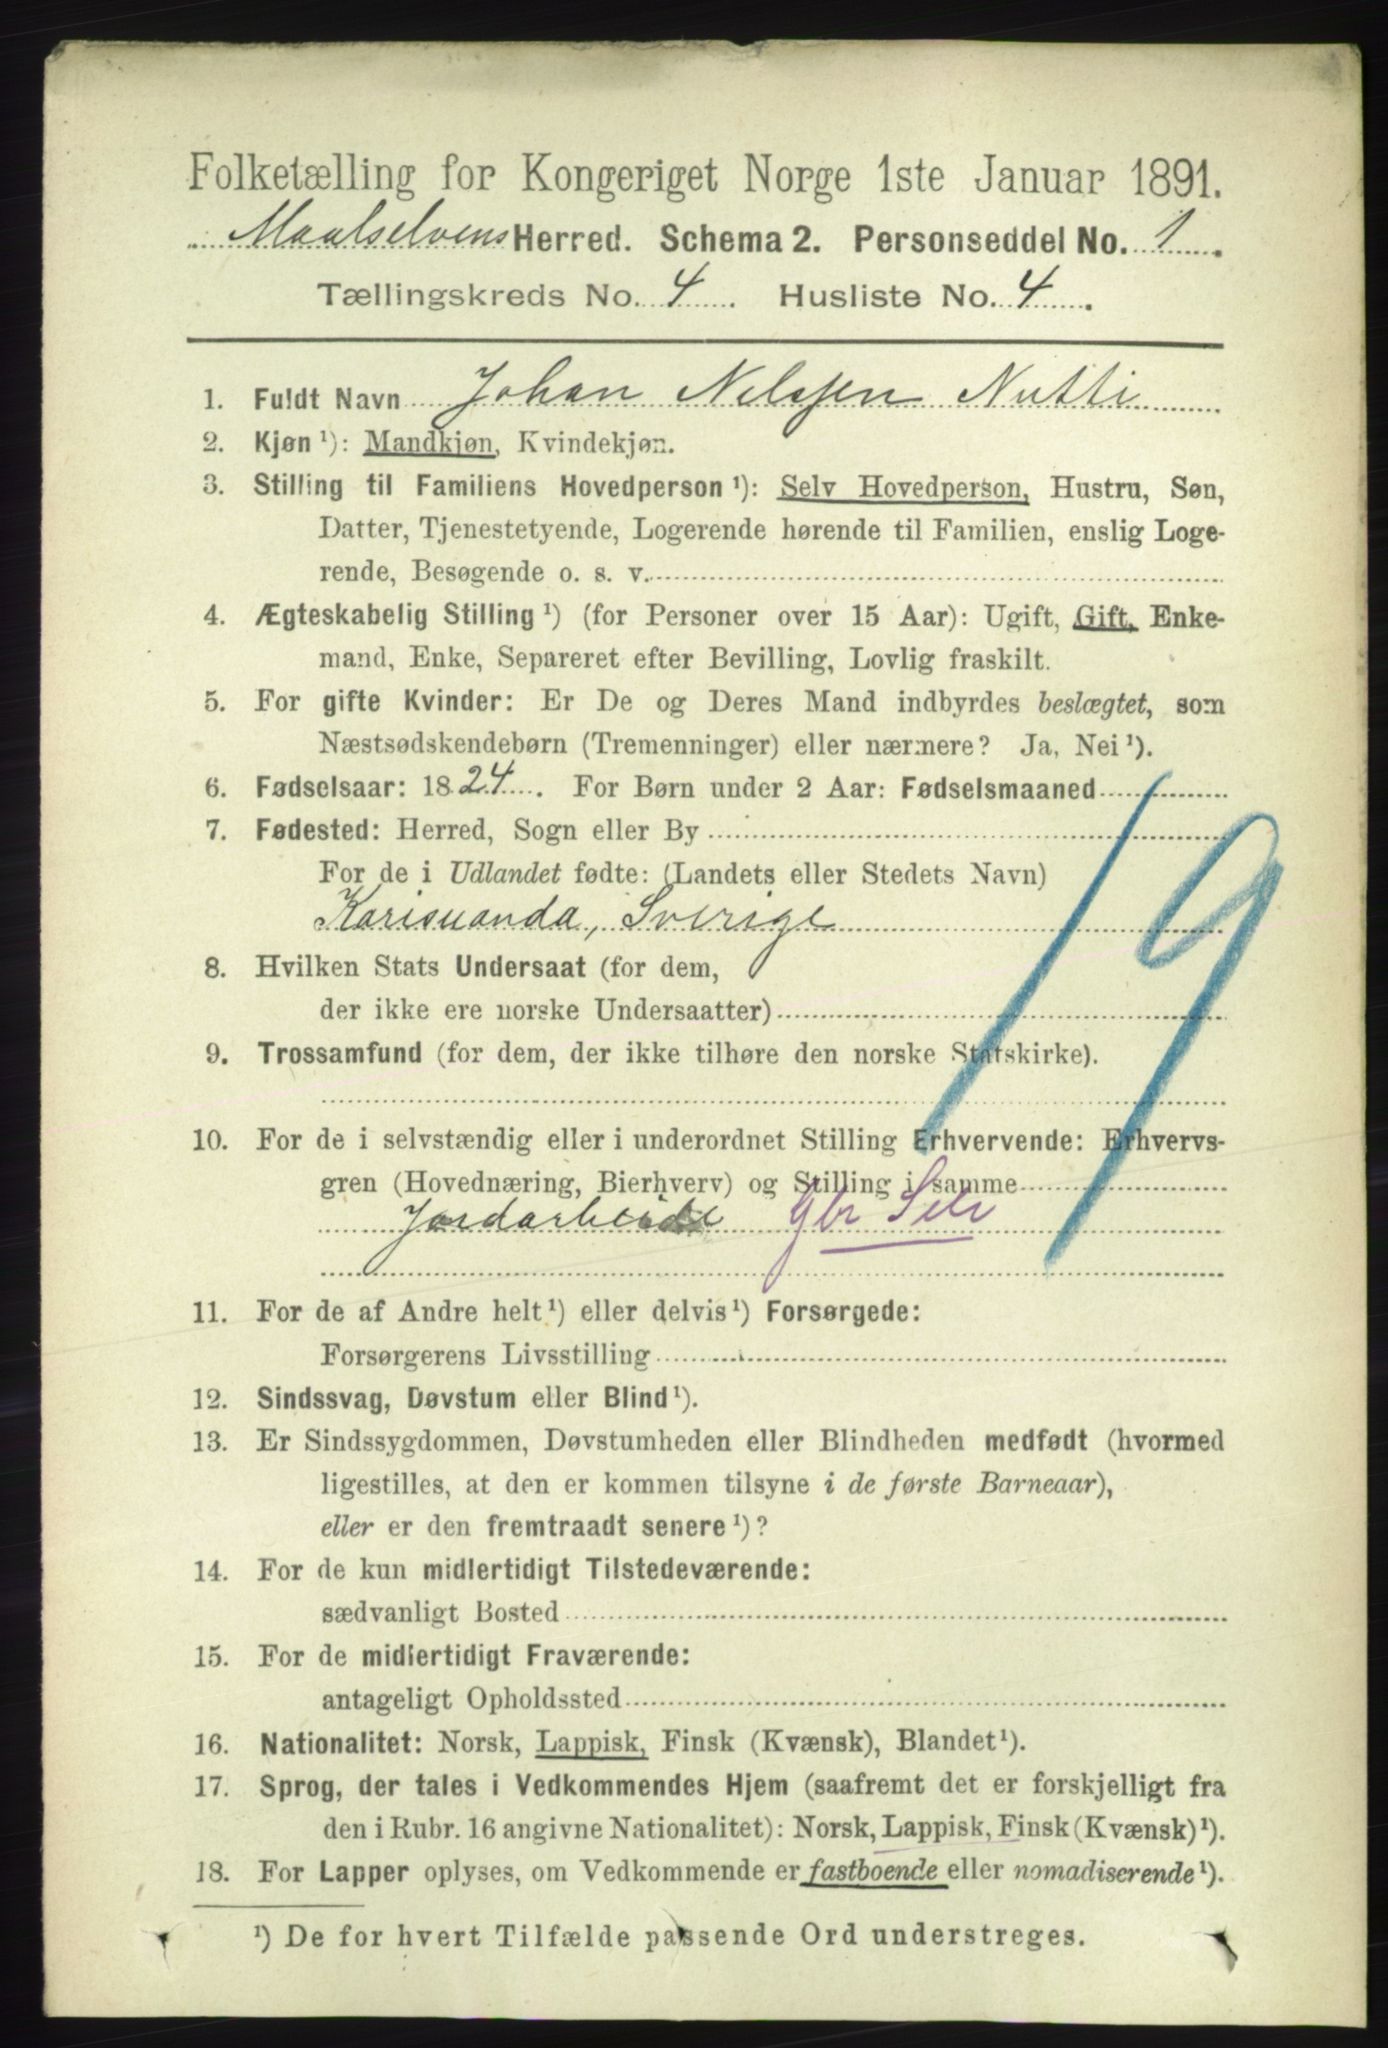 Folketælling for Kongeriget Norge 1ste Januar 1891.
Maalselvens Herred. Schema 2. Personseddel No. 1.
Tællingskreds No. 4. Husliste No. 4.
1. Fuldt Navn Johan Nelssen Nutti
2. Kjøn ¹): Mandkjøn, Kvindekjøn.
3. Stilling til Familiens Hovedperson ¹): Selv Hovedperson, Hustru, Søn,
Datter, Tjenestetyende, Logerende hørende til Familien, enslig Loge-
rende, Besøgende o. s. v.
4. Ægteskabelig Stilling ¹) (for Personer over 15 Aar): Ugift, Gift, Enke-
mand, Enke, Separeret efter Bevilling, Lovlig fraskilt.
5. For gifte Kvinder: Er De og Deres Mand indbyrdes beslægtet, som
Næstsødskendebørn (Tremenninger) eller nærmere? Ja, Nei ¹).
6. Fødselsaar: 1824. For Børn under 2 Aar: Fødselsmaaned
7. Fødested: Herred, Sogn eller By
For de i Udlandet fødte: (Landets eller Stedets Navn)
Karisuanda, Sverige
8. Hvilken Stats Undersaat (for dem,
der ikke ere norske Undersaatter)
9. Trossamfund (for dem, der ikke tilhøre den norske Statskirke).
19
10. For de i selvstændig eller i underordnet Stilling Erhvervende: Erhvervs-
gren (Hovednæring, Bierhverv) og Stilling i samme
Jordarbeide Gbr Selv
11. For de af Andre helt ¹) eller delvis ¹) Forsørgede:
Forsørgerens Livsstilling
12. Sindssvag, Døvstum eller Blind ¹).
13. Er Sindssygdommen, Døvstumheden eller Blindheden medfødt (hvormed
ligestilles, at den er kommen tilsyne i de første Barneaar),
eller er den fremtraadt senere ¹)?
14. For de kun midlertidigt Tilstedeværende:
sædvanligt Bosted
15. For de midlertidigt Fraværende:
antageligt Opholdssted
16. Nationalitet: Norsk, Lappisk, Finsk (Kvænsk), Blandet ¹).
17. Sprog, der tales i Vedkommendes Hjem (saafremt det er forskjelligt fra
den i Rubr. 16 angivne Nationalitet): Norsk, Lappisk, Finsk (Kvænsk) ¹).
18. For Lapper oplyses, om Vedkommende er fastboende eller nomadiserende ¹).
¹) De for hvert Tilfælde passende Ord understreges.